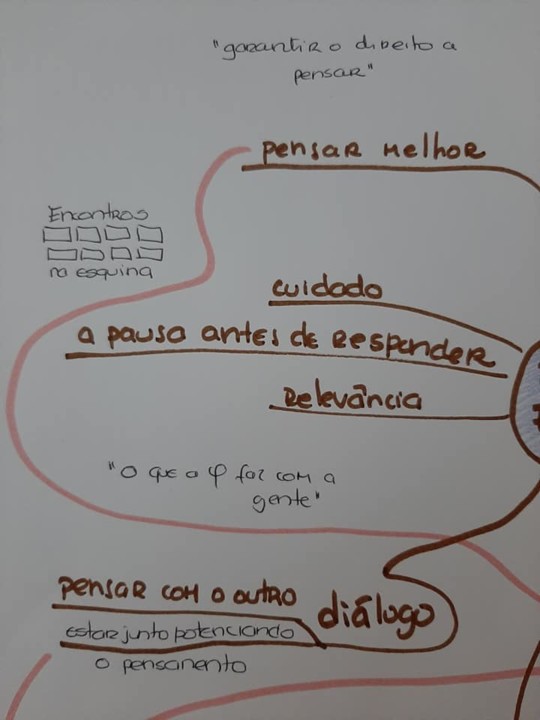 "garantir o direito a
pensar"
pensar melhor
Encontros
na esquina
cuidado
a pausa antes de responder
Relevância
"O que a φ faz com a
gente"
pensar com o outro
diálogo
estar junto potenciando
o pensamento